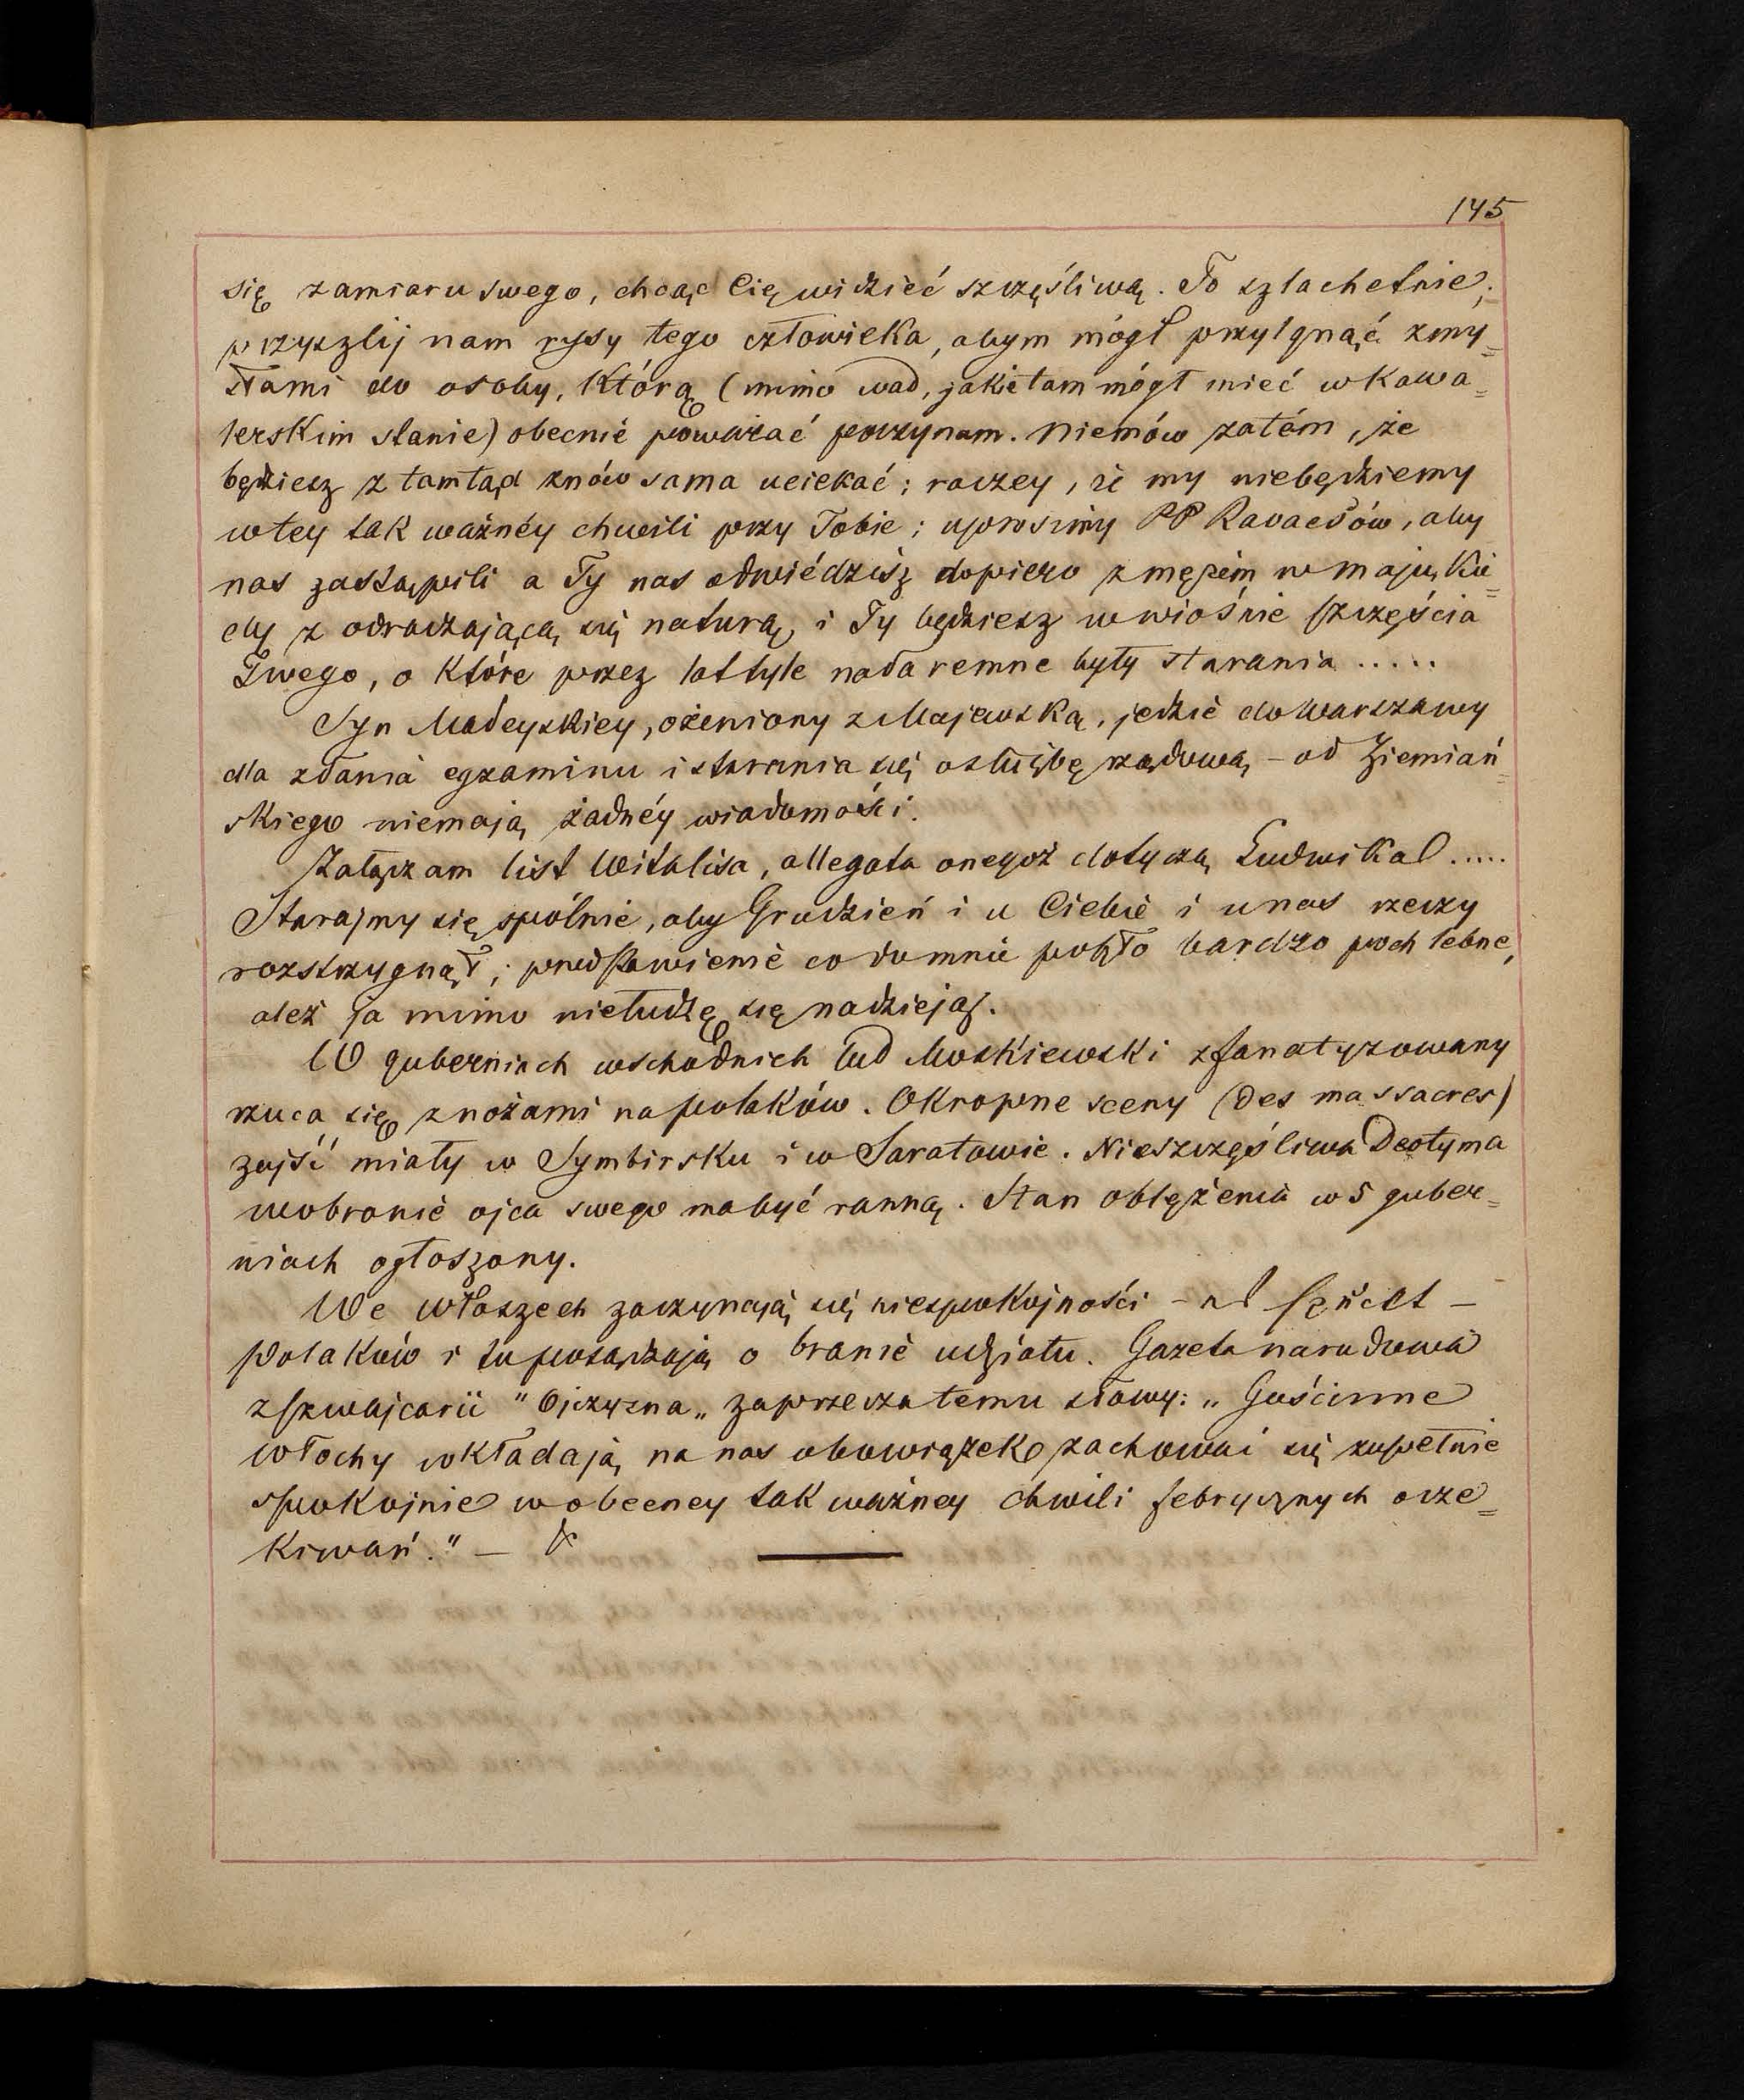 145
się zamiaru swego, chcąc Cię widzieć szczęśliwą. To szlachetnie;
przyszlij nam rysy tego człowieka, abym mógł przylgnąć zmy=
słami do osoby, którą (mimo wad, jakie tam mógł mieć w kawa=
lerskim stanie) obecnie poważać poczynam. Niemów zatém, że
będziesz z tamtąd znów sama uciekać; raczey, że my niebędziemy
w tey tak ważnéy chwili przy Tobie; uprosimy PP Ravaesów, aby
nas zastąpili a Ty nas odwiédzisz dopiero z mężem w maju, kie=
dy z odradzającą się naturą, i Ty będziesz w wiośnie szczęścia
Twego, o które przez lat tyle nadaremne były starania .....
Syn Madeyskiey, ożeniony z Majewską, jedzie do Warszawy
dla zdania egzaminu i starania się o służbę rządową – od Ziemiań=
skiego niemają żadnéy wiadomości.
Załączam list Witalisa, allegata onegoż dotyczą Ludwika .....
Starajmy się spólnie, aby Grudzień i u Ciebie i u nas rzeczy
rozstrzygnął; przedstawienie co do mnie poszło bardzo pochlebne,
aleź ja mimo niełudzę się nadzieją.
W guberniach wschodnich lud Moskiewski zfanatyzowany
rzuca się z nożami na polaków. Okropne sceny (des massacres)
zajść miały w Symbirsku i w Saratowie. Nieszczęśliwa Deotyma
w obronie ojca swego ma być ranną. Stan oblężenia w 5 guber=
niach ogłoszony.
We Włoszech zaczynają się niespokojności –
Polaków i tu posądzają o branie udziału. Gazeta narodowa
z Szwajcarii "Ojczyzna„ zaprzecza temu słowy: „Gościnne
Włochy wkładają na nas obowiązek zachować się zupełnie
spokojnie w obecney tak ważney chwili febrycznych ocze=
kiwań." –